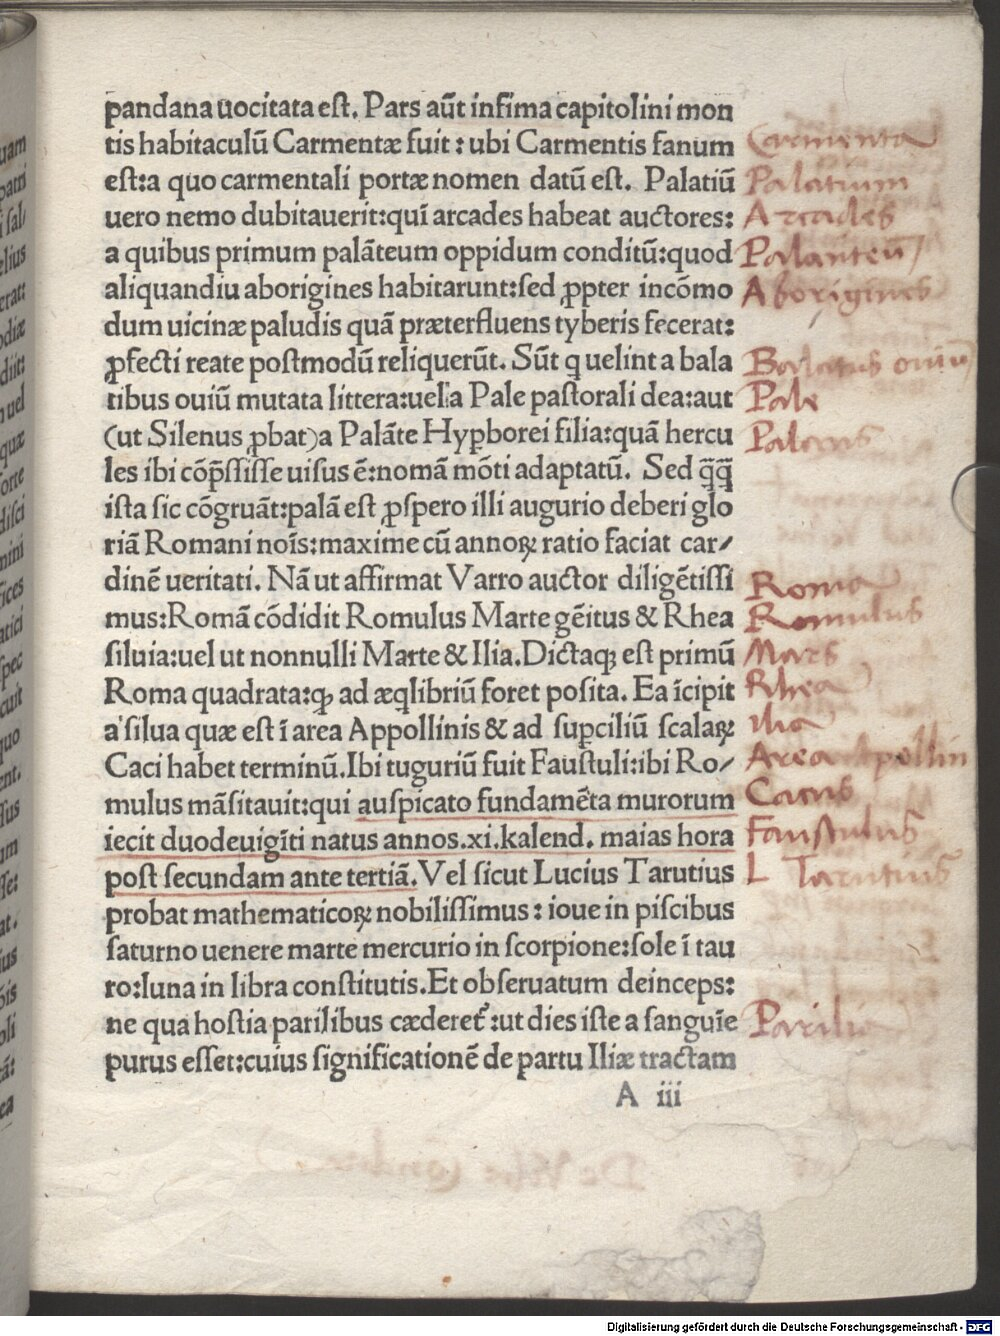 pandana uocitata est. Pars aūt infima capitolini mon
tis habitaculū Carmentæ fuit: ubi Carmentis fanum
est:a quo carmentali portæ nomen datū est. Palatiū
uero nemo dubitauerit:quī arcades habeat auctores:
a quibus primum palāteum oppidum conditū:quod
aliquandiu aborigines habitarunt:sed ꝓpter incōmo
dum uicinæ paludis quā præterfluens tyberis fecerat:
ꝓfecti reate postmodū reliquerūt. Sūt q uelint a bala
tibus ouiū mutata littera:uel a Pale pastorali dea:aut
(ut Silenus ꝓbat)a Palāte Hyꝑborei filia:quā hercu
les ibi cōp̄ssisse uisus ē:nomā mōti adaptatū. Sed q̄q̄
ista sic cōgruāt:palā est ꝓspero illi augurio deberi glo
riā Romani noīs:maxime cū annoꝝ ratio faciat car/
dinē ueritati. Nā ut affirmat Varro auctor diligētissi
mus:Romā cōdidit Romulus Marte gēitus & Rhea
siluia:uel ut nonnulli Marte & Ilia.Dictaqꝫ est primū
Roma quadrata:qꝫ ad æqlibriū foret posita. Ea īcipit
a silua quæ est ī area Appollinis & ad suꝑciliū scalaꝝ
Caci habet terminū.Ibi tuguriū fuit Faustuli:ibi Ro/
mulus māsitauit:qui auspicato fundamēta murorum
iecit duodeuigīti natus annos.xi.kalend. maias hora
post secundam ante tertiā. Vel sicut Lucius Tarutius
probat mathematicoꝝ nobilissimus: ioue in piscibus
saturno uenere marte mercurio in scorpione:sole ī tau
ro:luna in libra constitutis.Et obseruatum deinceps:
ne qua hostia parilibus cæderet᷑:ut dies iste a sanguīe
purus esset:cuius significationē de partu Iliæ tractam
A iii
Carmenta
Palatium
Arcades
Palanteū
Aborigines
Balatus ouiū
Pale
Roma
Romulus
Mars
Rhea
Ilia
Area Apollin
Cacus
Faustulus
L Tarutius
Parilia
Digitalisierung gefördert durch die Deutsche Forschungsgemeinschaft - DFG